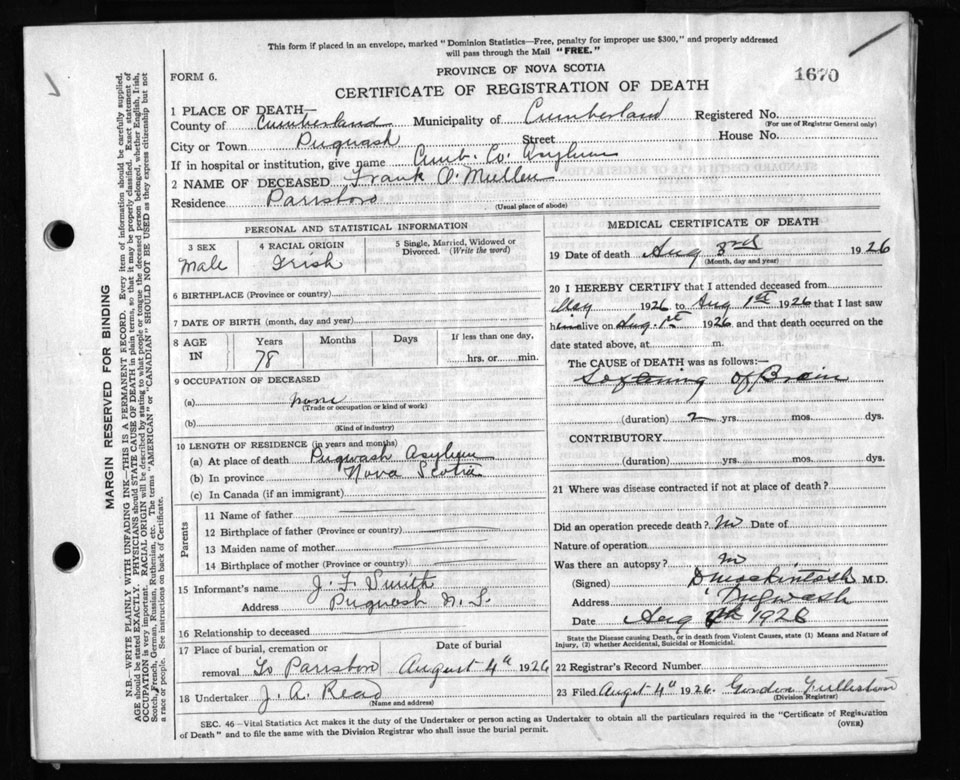 This form if placed in an envelope, marked "Dominion Statistics—Free, penalty for improper use $300," and properly addressed
will pass through the Mail "FREE."
FORM 6.
PROVINCE OF NOVA SCOTIA
1670
CERTIFICATE OF REGISTRATION OF DEATH
1 PLACE OF DEATH—
County of Cumberland Municipality of Cumberland Registered No.
(For use of Registrar General only)
City or Town Pugwash Street House No.
If in hospital or institution, give name Cumb. Co. Asylum
2 NAME OF DECEASED Frank O. Mullen
Residence Parrsboro
(Usual place of abode)
PERSONAL AND STATISTICAL INFORMATION
3 SEX 4 RACIAL ORIGIN 5 Single, Married, Widowed or
Divorced. (Write the word)
Male Irish
6 BIRTHPLACE (Province or country)
7 DATE OF BIRTH (month, day and year)
8 AGE IN Years Months Days If less than one day,
78 hrs. or min.
9 OCCUPATION OF DECEASED
(a) None
(Trade or occupation or kind of work)
(b)
(Kind of industry)
10 LENGTH OF RESIDENCE (in years and months)
(a) At place of death Pugwash Asylum
(b) In province Nova Scotia
(c) In Canada (if an immigrant)
Parents
11 Name of father
12 Birthplace of father (Province or country)
13 Maiden name of mother
14 Birthplace of mother (Province or country)
15 Informant's name J. F. Smith
Address Pugwash N. S.
16 Relationship to deceased
17 Place of burial, cremation or Date of burial
removal To Parrsboro August 4th 1926
18 Undertaker J. A. Read
(Name and address)
MEDICAL CERTIFICATE OF DEATH
19 Date of death Aug 3rd 1926
(Month, day and year)
20 I HEREBY CERTIFY that I attended deceased from
May 1926 to Aug 1st 1926 that I last saw
him alive on Aug. 1st 1926, and that death occurred on the
date stated above, at m.
The CAUSE of DEATH was as follows:—
Softening of Brain
(duration) 2 yrs. mos. dys.
CONTRIBUTORY
(duration) yrs. mos. dys.
21 Where was disease contracted if not at place of death?
Did an operation precede death? no Date of
Nature of operation
Was there an autopsy? no
(Signed) D Mackintosh M.D.
Address Pugwash
Date Aug 1926
State the Disease causing Death, or in death from Violent Causes, state (1) Means and Nature of
Injury, (2) whether Accidental, Suicidal or Homicidal.
22 Registrar's Record Number
23 Filed August 4th 1926. Gordon
(Division Registrar)
SEC. 46—Vital Statistics Act makes it the duty of the Undertaker or person acting as Undertaker to obtain all the particulars required in the "Certificate of Registration
of Death" and to file the same with the Division Registrar who shall issue the burial permit. (OVER)
MARGIN RESERVED FOR BINDING
N.B.—WRITE PLAINLY WITH UNFADING INK—THIS IS A PERMANENT RECORD. Every item of information should be carefully supplied.
AGE should be stated EXACTLY. PHYSICIANS should STATE CAUSE OF DEATH in plain terms, so that it may be properly classified. Exact statement of
OCCUPATION is very important. RACIAL ORIGIN will be described by stating to what people or tongue the deceased person belonged, whether English, Irish,
Scotch, French, German, Russian, Ruthenian, etc. The terms "AMERICAN" or "CANADIAN" SHOULD NOT BE USED as they express citizenship but not
a race or people. See instructions on back of Certificate.